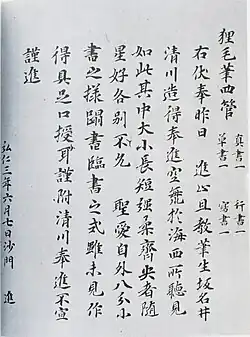 狸毛筆四管 真書一 行書一
草書一 寫書一
右伏奉昨日 進止且教筆生坂名井
清川造得奉進空海於海西所聽見
如此其中大小長短強柔齊尖者隨
星好各別不允 聖愛自外八分小
書之樣蹋書臨書之式雖未見作
得具足口授耳謹附清川奉進不宣
謹進
弘仁三年六月七日沙門 進